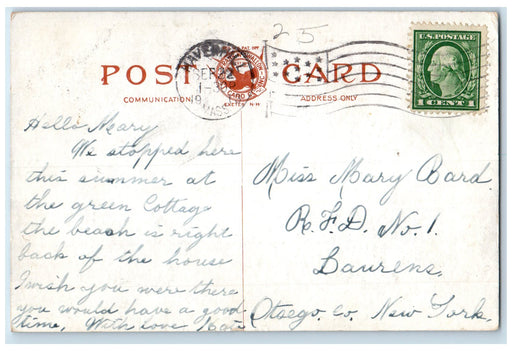 25
U.S. POSTAGE
HAVERHILL
SEP 22
MASS
1 CENT 1
POST CARD
COMMUNICATION
EXETER N.H.
ADDRESS ONLY
Hello Mary
We stopped here
this summer at
the green Cottage
the beach is right
back of the house
I wish you were there
you would have a good
time, With love Kate
Miss Mary Bard
R.F.D. No. 1.
Laurens,
Otsego. Co. New York.